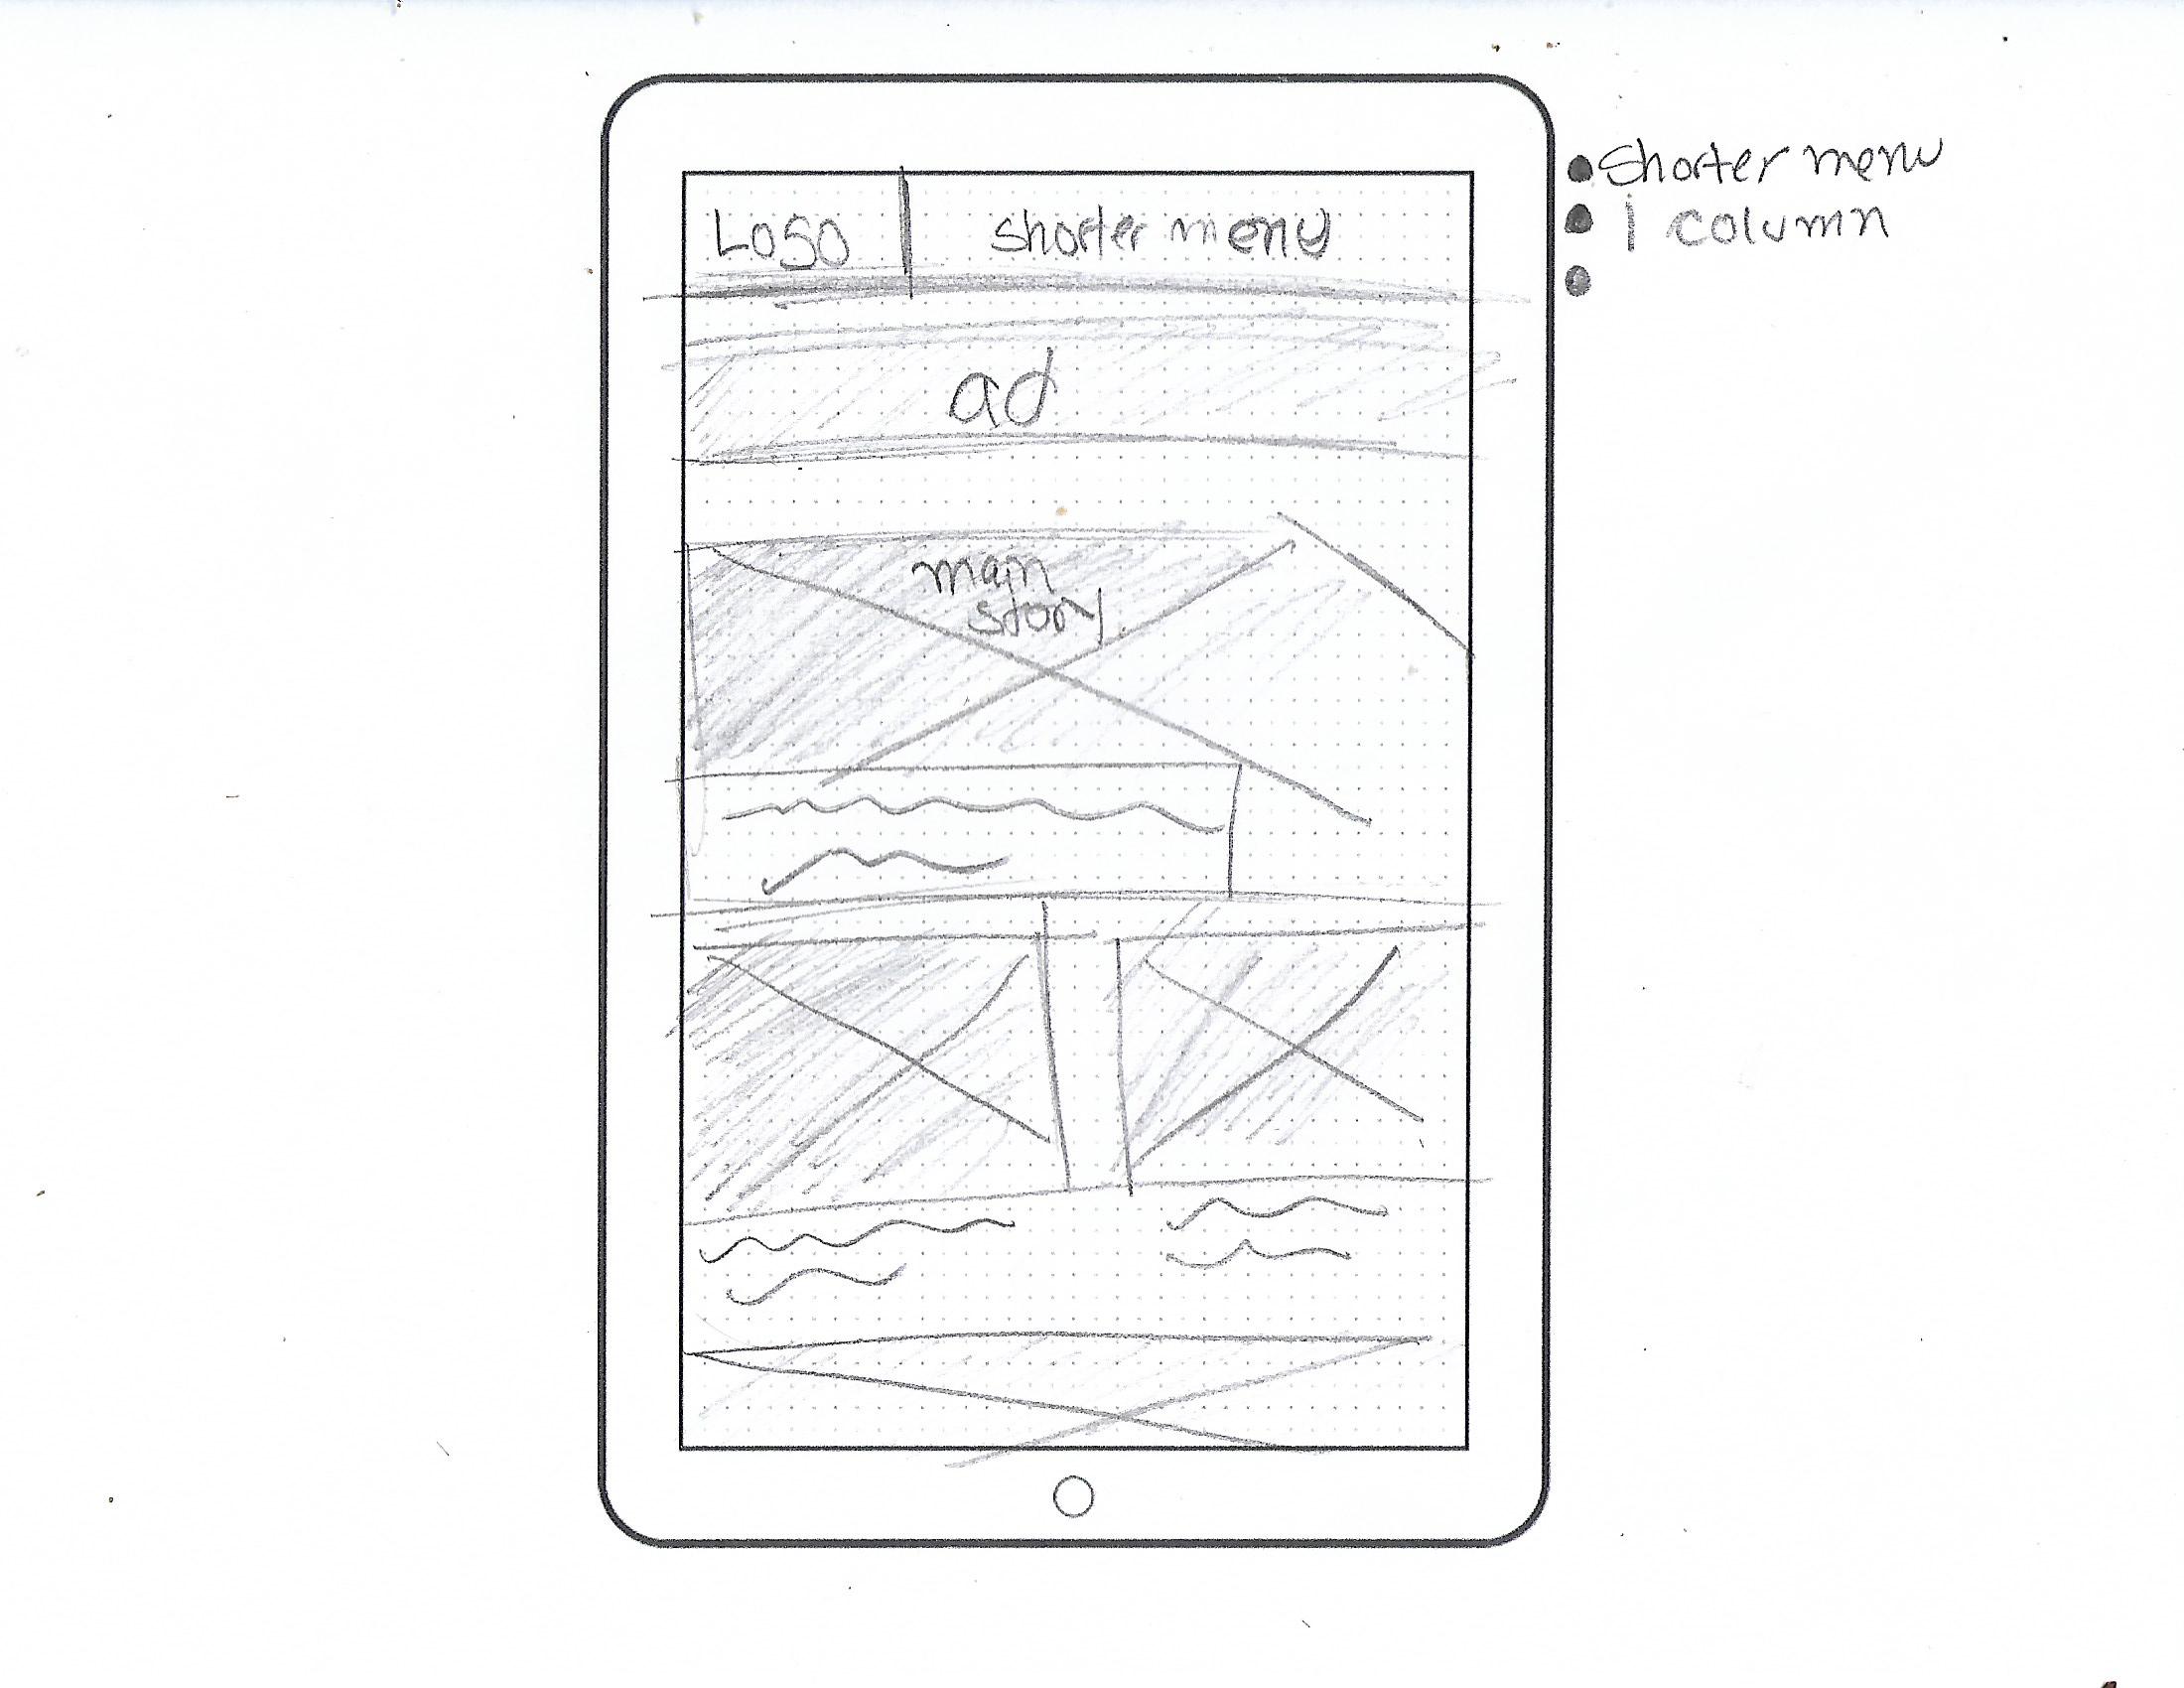 Logo
shorter menu
ad
main
story
Shorter menu
1 column